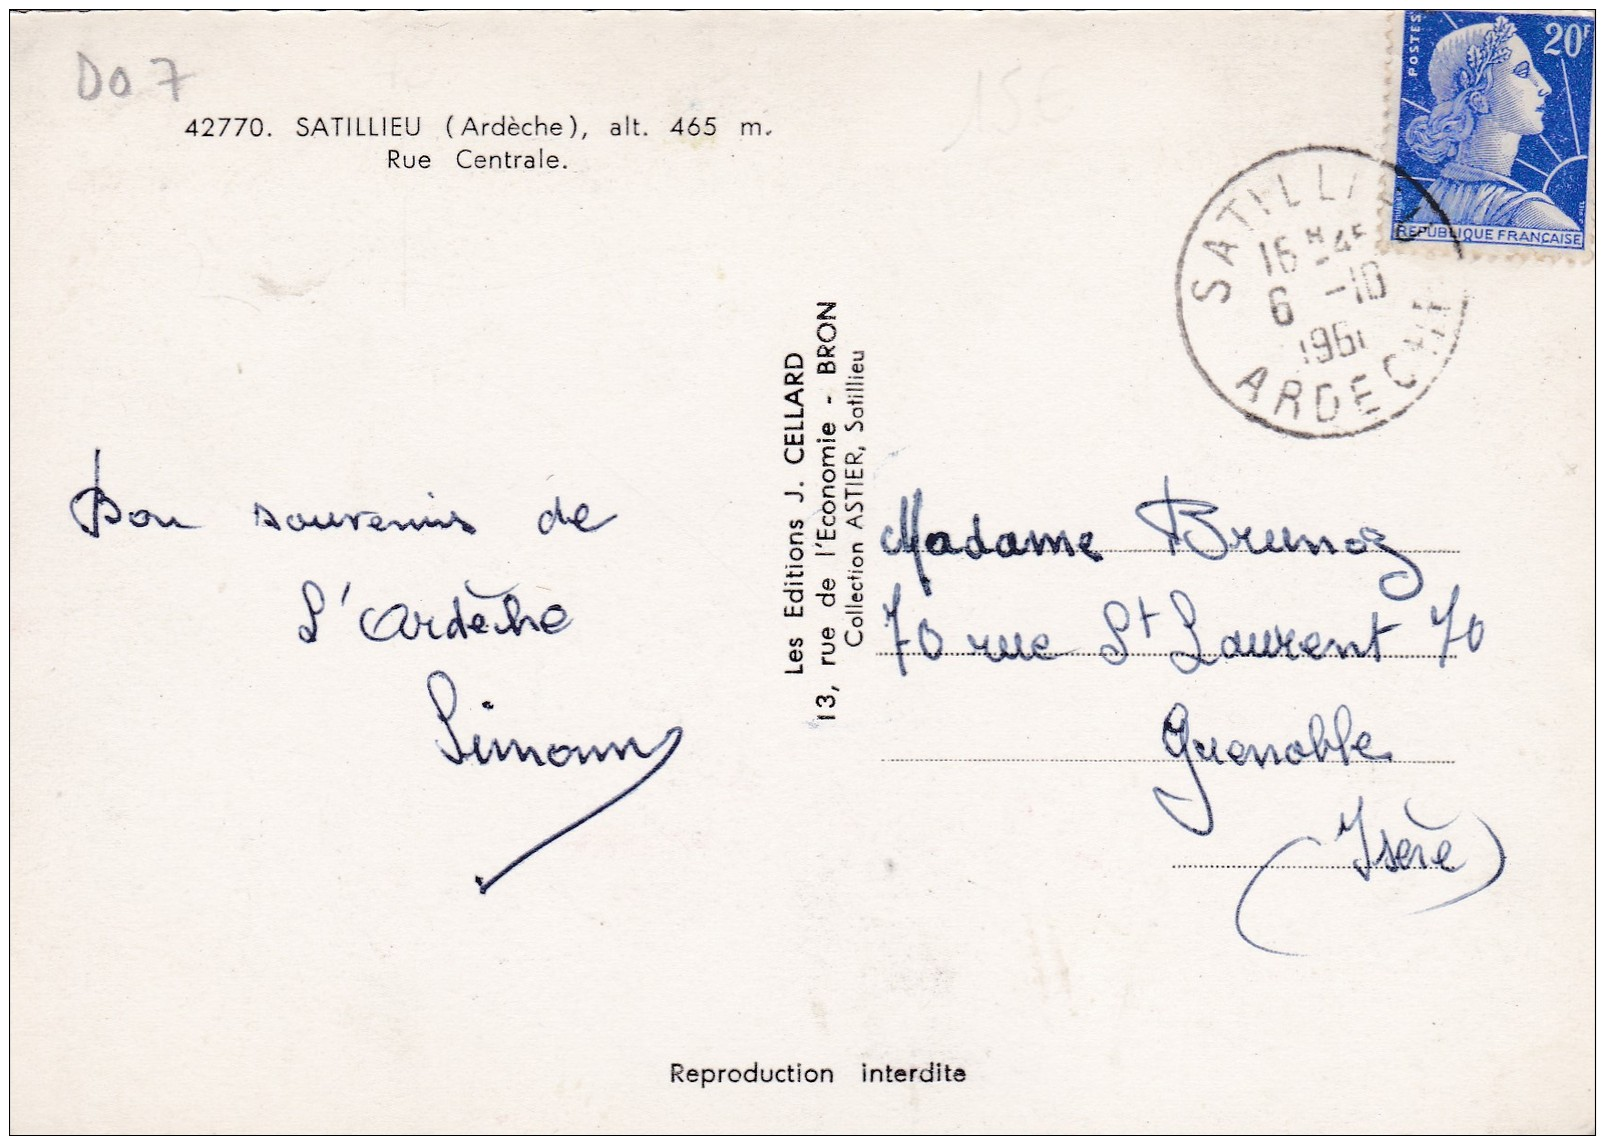 Do 7
15€
42770. SATILLIEU (Ardèche), alt. 465 m.
Rue Centrale.
POSTES
20F
REPUBLIQUE FRANÇAISE
SATILLIEU
16 H-45
6 -10
1961
ARDECHE
Bon souvenirs de
L'Ardèche
Les Editions J. CELLARD
13, rue de l'Economie - BRON
Collection ASTIER, Satillieu
Madame
70 rue St Laurent 70
Grenoble
(Isère)
Reproduction interdite